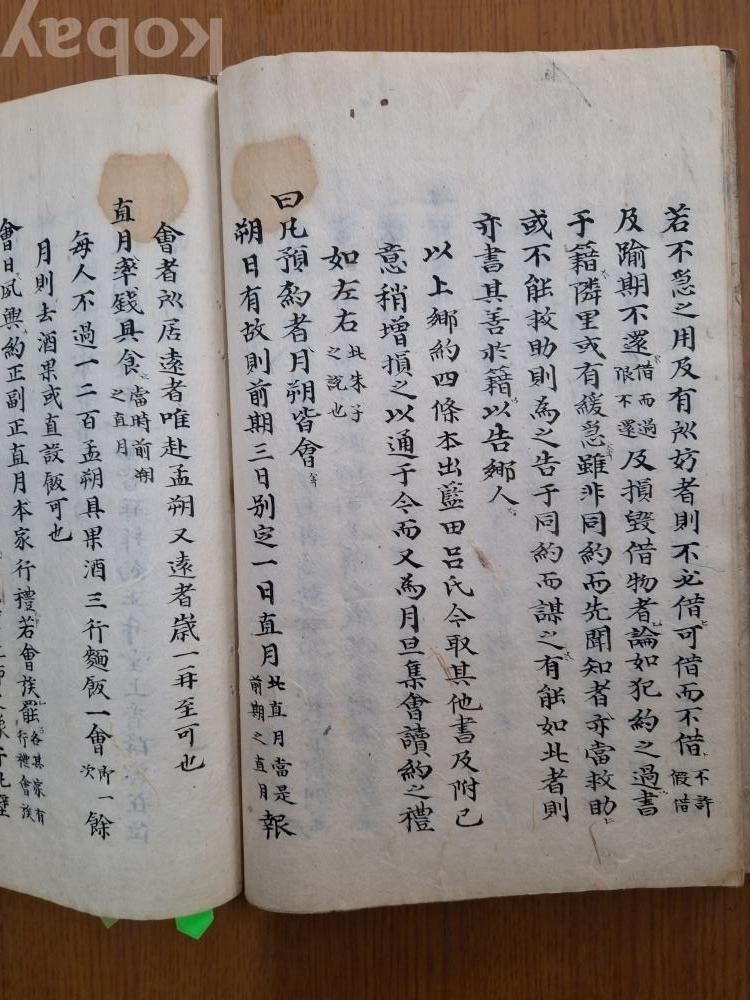 kobay
若不急之用及有所妨者則不必借可借而不借不許假借
及踰期不還借而過限不還及損毀借物者論如犯約之過書
于籍隣里或有緩急雖非同約而先聞知者亦當救助
或不能救助則為之告于同約而謀之有能如此者則
亦書其善於籍以告鄉人
以上鄉約四條本出藍田呂氏今取其他書及附己
意稍增損之以通于今而又為月旦集會讀約之禮
如左右此朱子之說也
曰凡預約者月朔皆會
朔日有故則前期三日別定一日直月此直月當是前期之直月報
會者所居遠者唯赴孟朔又遠者歲一再至可也
直月率錢具食當時前朔之直月
每人不過一二百孟朔具果酒三行麵飯一會即一次餘
月則去酒果或直設飯可也
會日夙興約正副正直月本家行禮若會族罷各其家有行禮會族